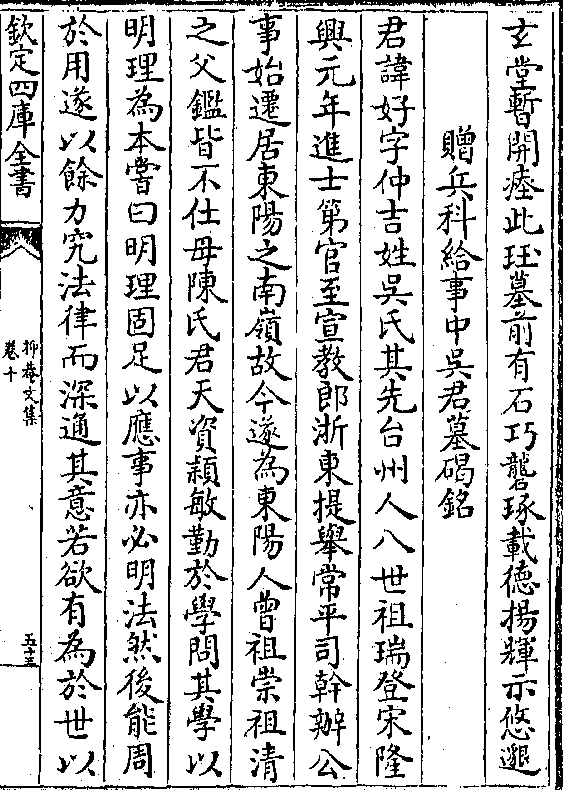 玄堂暫開瘞此珏墓前有石巧礱琢載德揚輝示悠邈
贈兵科給事中吳君墓碣銘
君諱好字仲吉姓吳氏其先台州人八世祖瑞登宋隆
興元年進士第官至宣教郎浙東提舉常平司幹辦公
事始遷居東陽之南嶺故今遂為東陽人曾祖崇祖清
之父鑑皆不仕母陳氏君天資穎敏勤於學問其學以
明理為本嘗曰明理固足以應事亦必明法然後能周
於用遂以餘力究法律而深通其意若欲有為於世以
欽定四庫全書
抑菴文集
卷十
五十三